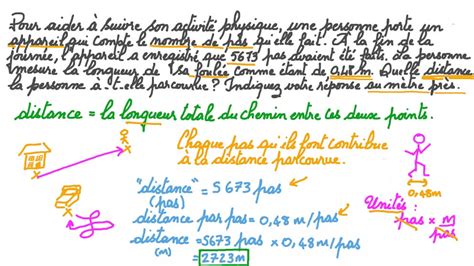 Pour aider à suivre son activité physique, une personne porte un
appareil qui compte le nombre de pas qu'elle fait. À la fin de la
journée, l'appareil a enregistré que 5673 pas avaient été faits. La personne
mesure la longueur de sa foulée comme étant de 0,48 m. Quelle distance
la personne a-t-elle parcourue ? Indiquez votre réponse au mètre près.
distance = la longueur totale du chemin entre ces deux points.
Chaque pas qu'ils font contribue
à la distance parcourue.
0,48m
"distance" = 5 673 pas
(pas)
distance par pas = 0,48 m/pas
distance = 5673 pas × 0,48 m/pas
(m)
= 2723 m
Unités :
pas × m/pas